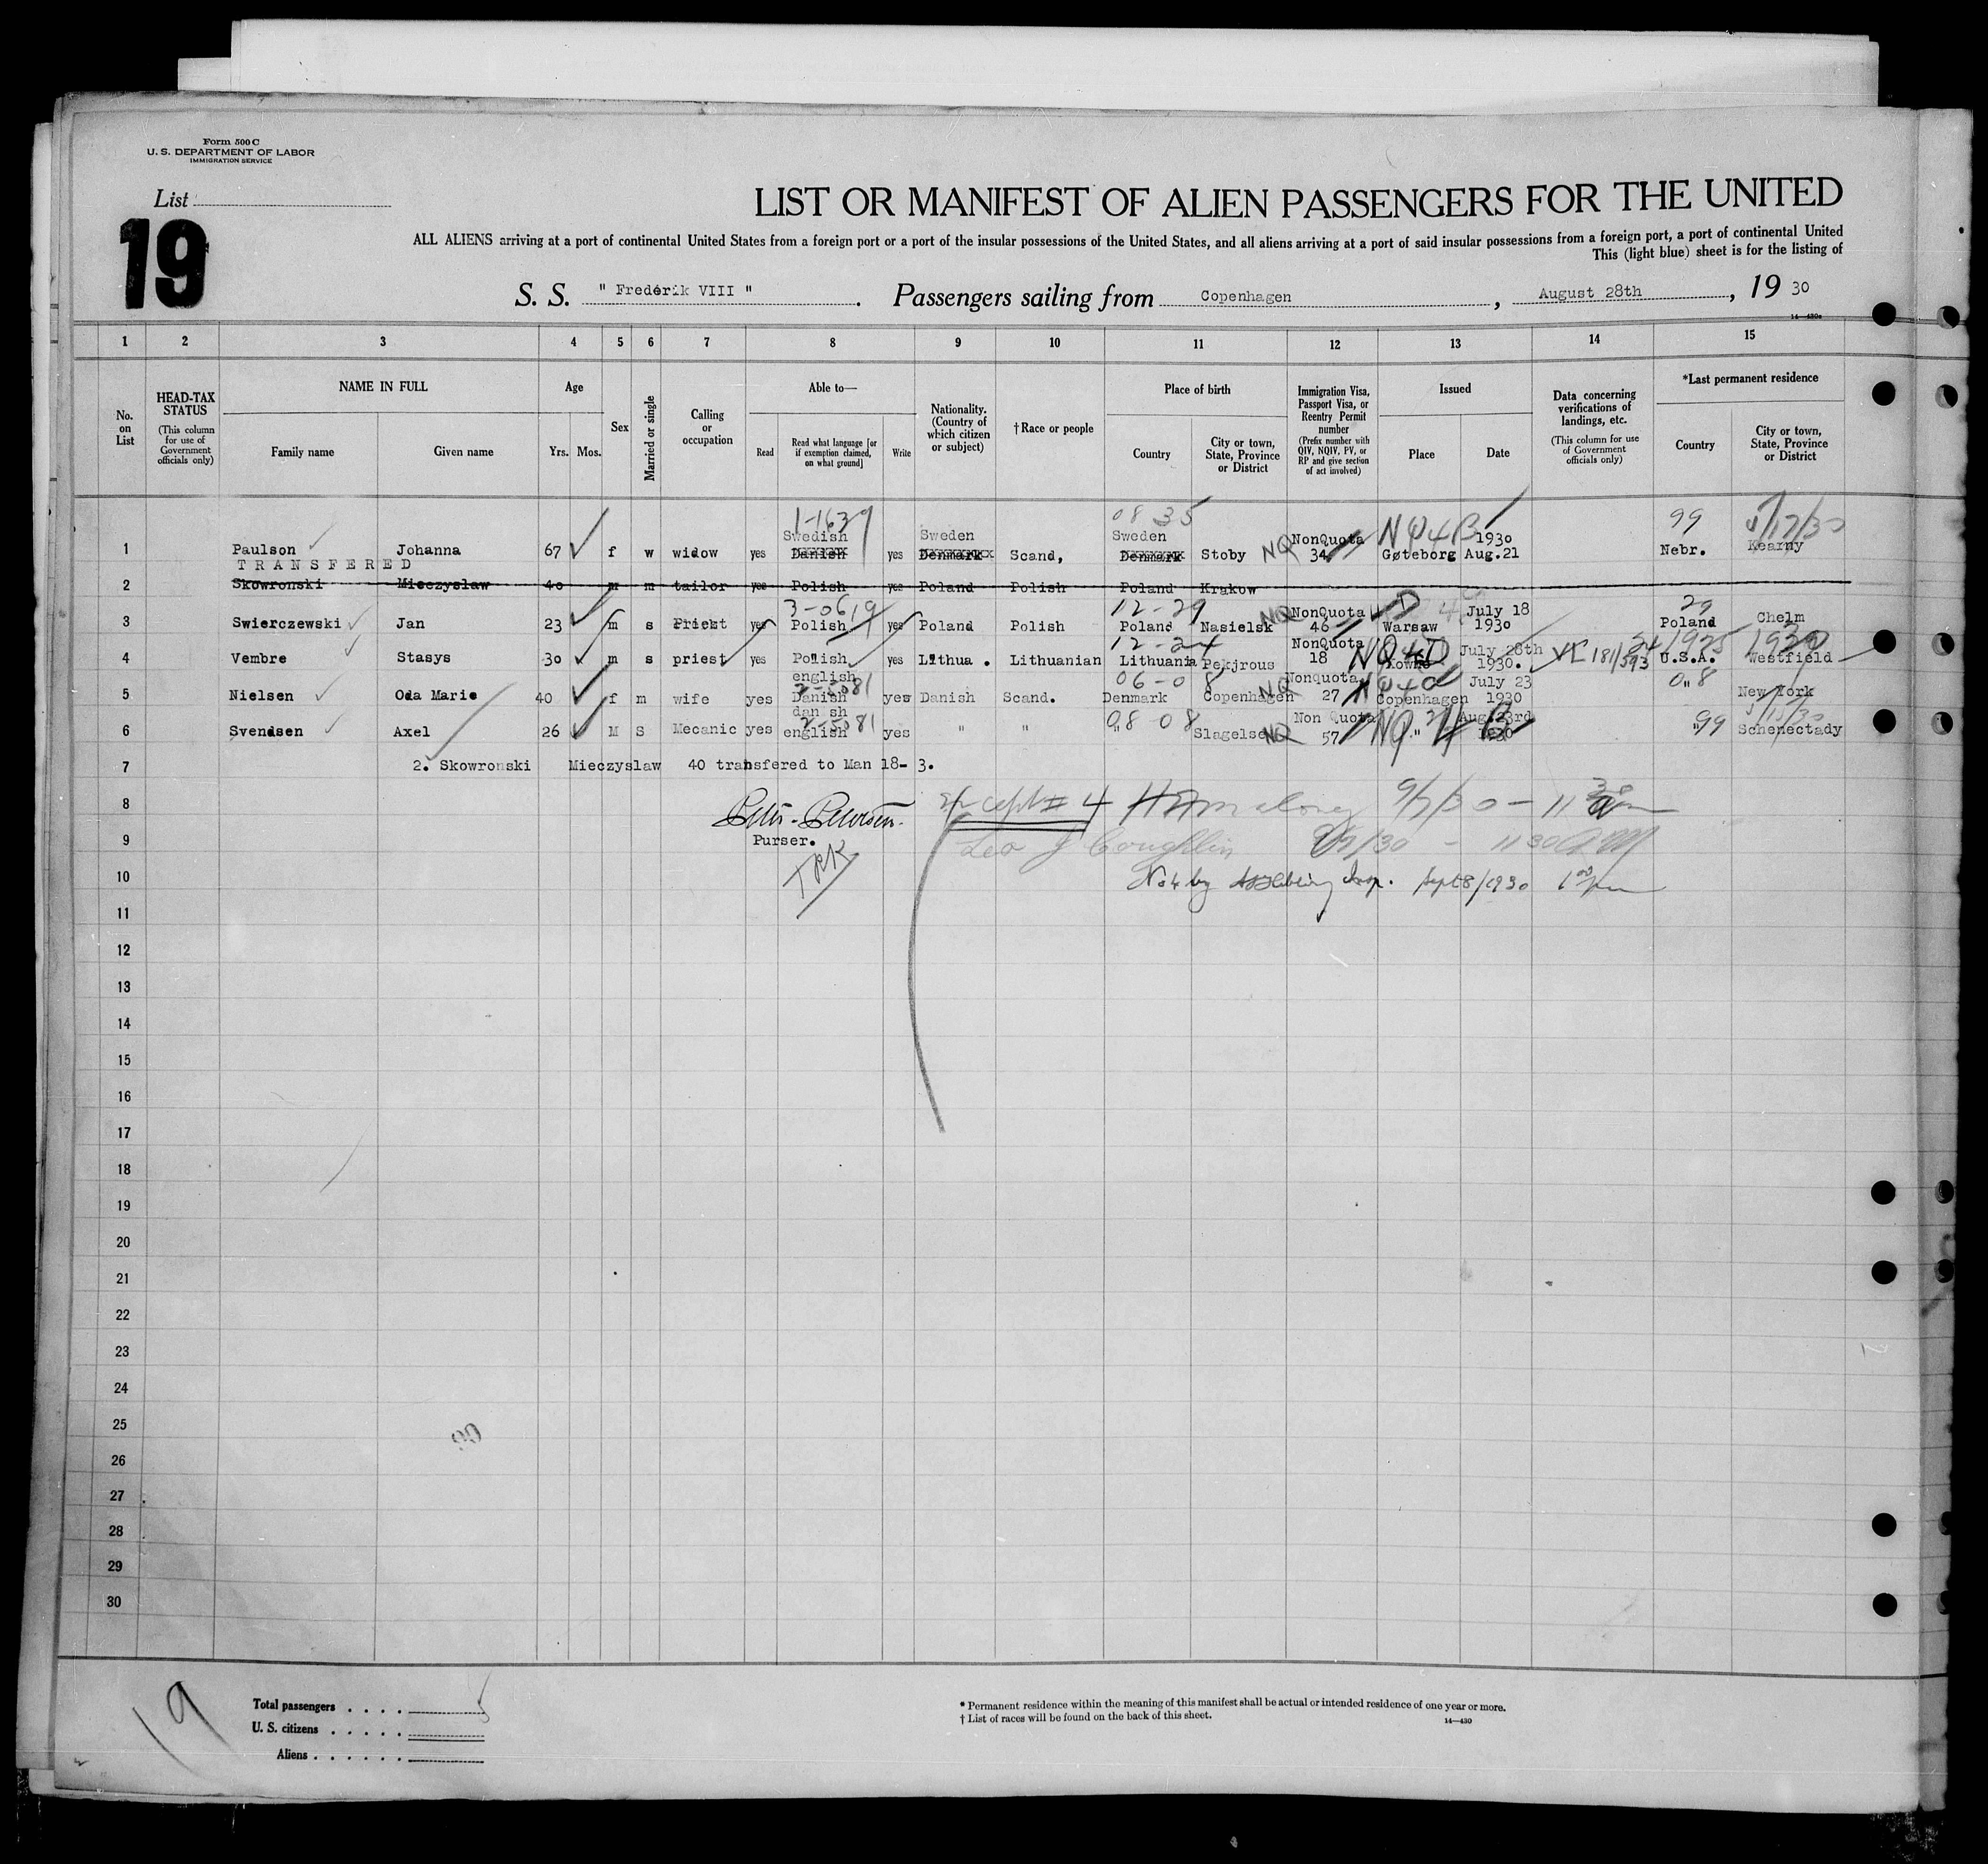 Form 500 C
U. S. DEPARTMENT OF LABOR
IMMIGRATION SERVICE
List
19
LIST OR MANIFEST OF ALIEN PASSENGERS FOR THE UNITED
ALL ALIENS arriving at a port of continental United States from a foreign port or a port of the insular possessions of the United States, and all aliens arriving at a port of said insular possessions from a foreign port, a port of continental United
This (light blue) sheet is for the listing of
S. S. " Frederik VIII " . Passengers sailing from Copenhagen , August 28th , 19 30
14—430a
1 2 3 4 5 6 7 8 9 10 11 12 13 14 15
No. on List
HEAD-TAX STATUS (This column for use of Government officials only)
NAME IN FULL Family name Given name
Age Yrs. Mos.
Sex
Married or single
Calling or occupation
Able to— Read Read what language [or if exemption claimed, on what ground] Write
Nationality. (Country of which citizen or subject)
†Race or people
Place of birth Country City or town, State, Province or District
Immigration Visa, Passport Visa, or Reentry Permit number (Prefix number with QIV, NQIV, PV, or RP and give section of act involved)
Issued Place Date
Data concerning verifications of landings, etc. (This column for use of Government officials only)
*Last permanent residence Country City or town, State, Province or District
1-1639 08 35 99
Swedish Sweden Sweden NonQuota NQ4B 1930
1 Paulson Johanna 67 f w widow yes Danish yes Denmark Scand, Denmark Stoby NQ 34 Gøteborg Aug.21 Nebr. Kearny
TRANSFERED
2 Skowronski Mieczyslaw 40 m m tailor yes Polish yes Poland Polish Poland Krakow
3-0619 12-29 NonQuota July 18 29 Chelm
3 Swierczewski Jan 23 m s Priest yes Polish yes Poland Polish Poland Nasielsk NQ 46 Warsaw 1930 Poland
12-24 NonQuota July 28th 1925 1930
4 Vembre Stasys 30 m s priest yes Polish yes Lithua . Lithuanian Lithuania Pekjrous 18 NQ4D Kowno 1930. VL 181/593 U.S.A. Westfield
english 2-5081 06-08 Nonquota NQ4d July 23 08
5 Nielsen Oda Marie 40 f m wife yes Danish yes Danish Scand. Denmark Copenhagen NQ 27 Copenhagen 1930 " New York
dan sh 2-5081 08-08 Non Quota Aug.23rd
6 Svendsen Axel 26 M S Mecanic yes english yes " " " Slagelse NQ 57 NQ " 1930 " 99 Schenectady
7 2. Skowronski Mieczyslaw 40 transfered to Man 18- 3.
8 Peter Petersen. Except # 4 9/7/30 – 11 30 am
9 Purser. Leo J Coughlin 9/7/30 - 11 30 AM
10 No 4 by Insp. Sept 8/1930 1 00 pm
11
12
13
14
15
16
17
18
19
20
21
22
23
24
25
26
27
28
29
30
19
Total passengers . . . . 5
U. S. citizens . . . . .
Aliens . . . . . .
* Permanent residence within the meaning of this manifest shall be actual or intended residence of one year or more.
† List of races will be found on the back of this sheet.
14—430